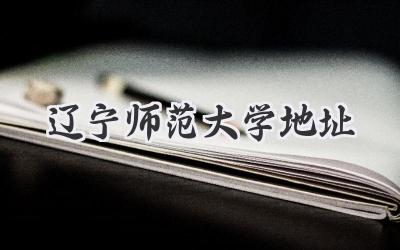 辽宁师范大学地址